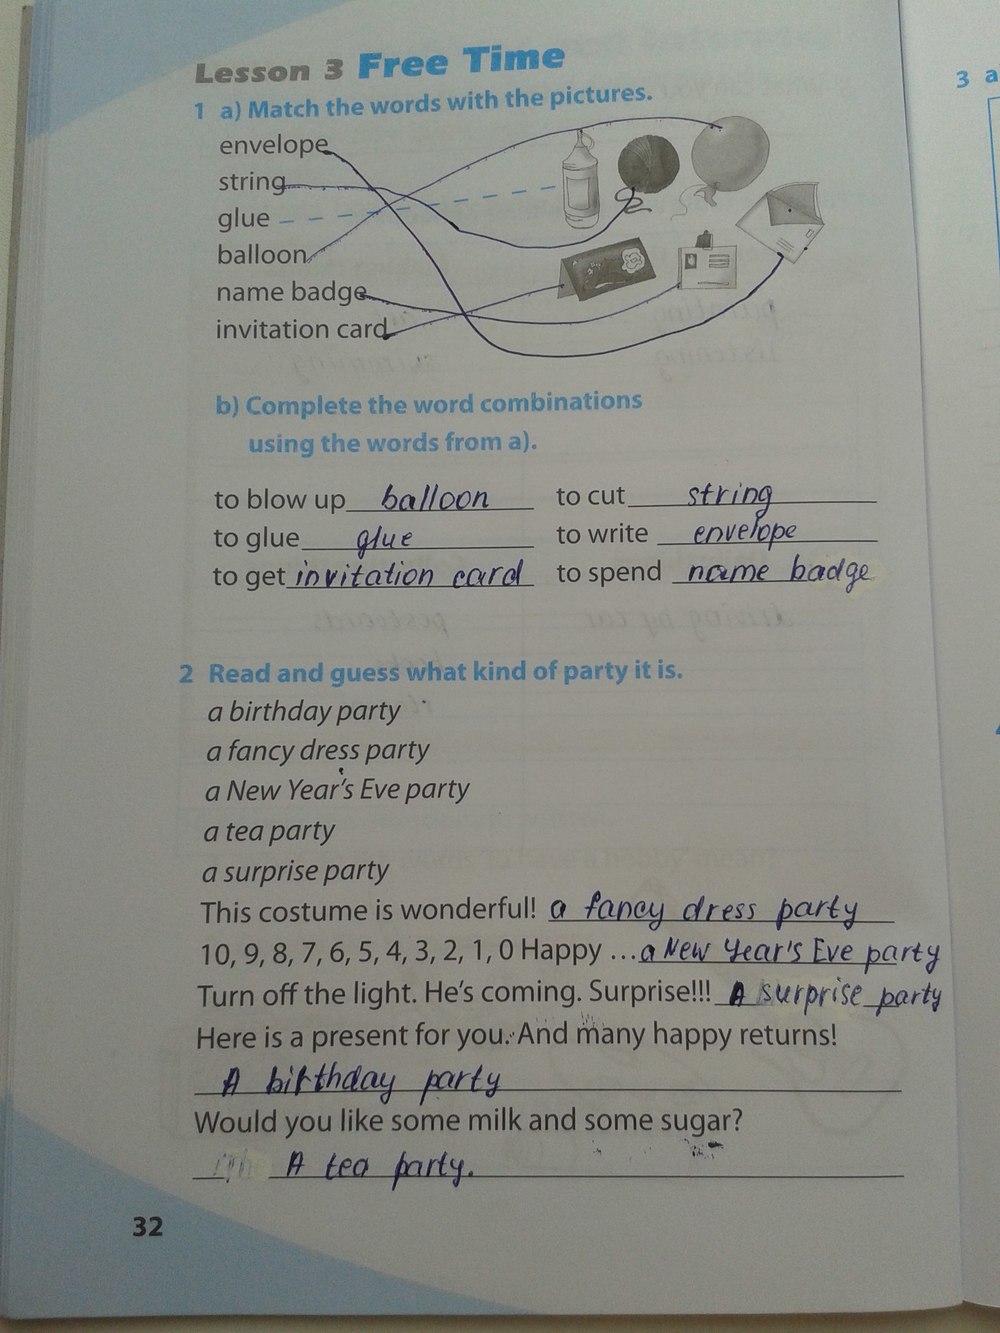 Lesson 3 Free Time
1 a) Match the words with the pictures.
envelope
string
glue
balloon
name badge
invitation card
b) Complete the word combinations
using the words from a).
to blow up balloon to cut string
to glue glue to write envelope
to get invitation card to spend name badge
2 Read and guess what kind of party it is.
a birthday party
a fancy dress party
a New Year's Eve party
a tea party
a surprise party
This costume is wonderful! a fancy dress party
10, 9, 8, 7, 6, 5, 4, 3, 2, 1, 0 Happy ... a New Year's Eve party
Turn off the light. He's coming. Surprise!!! A surprise party
Here is a present for you. And many happy returns!
A birthday party
Would you like some milk and some sugar?
A tea party.
32
3 a